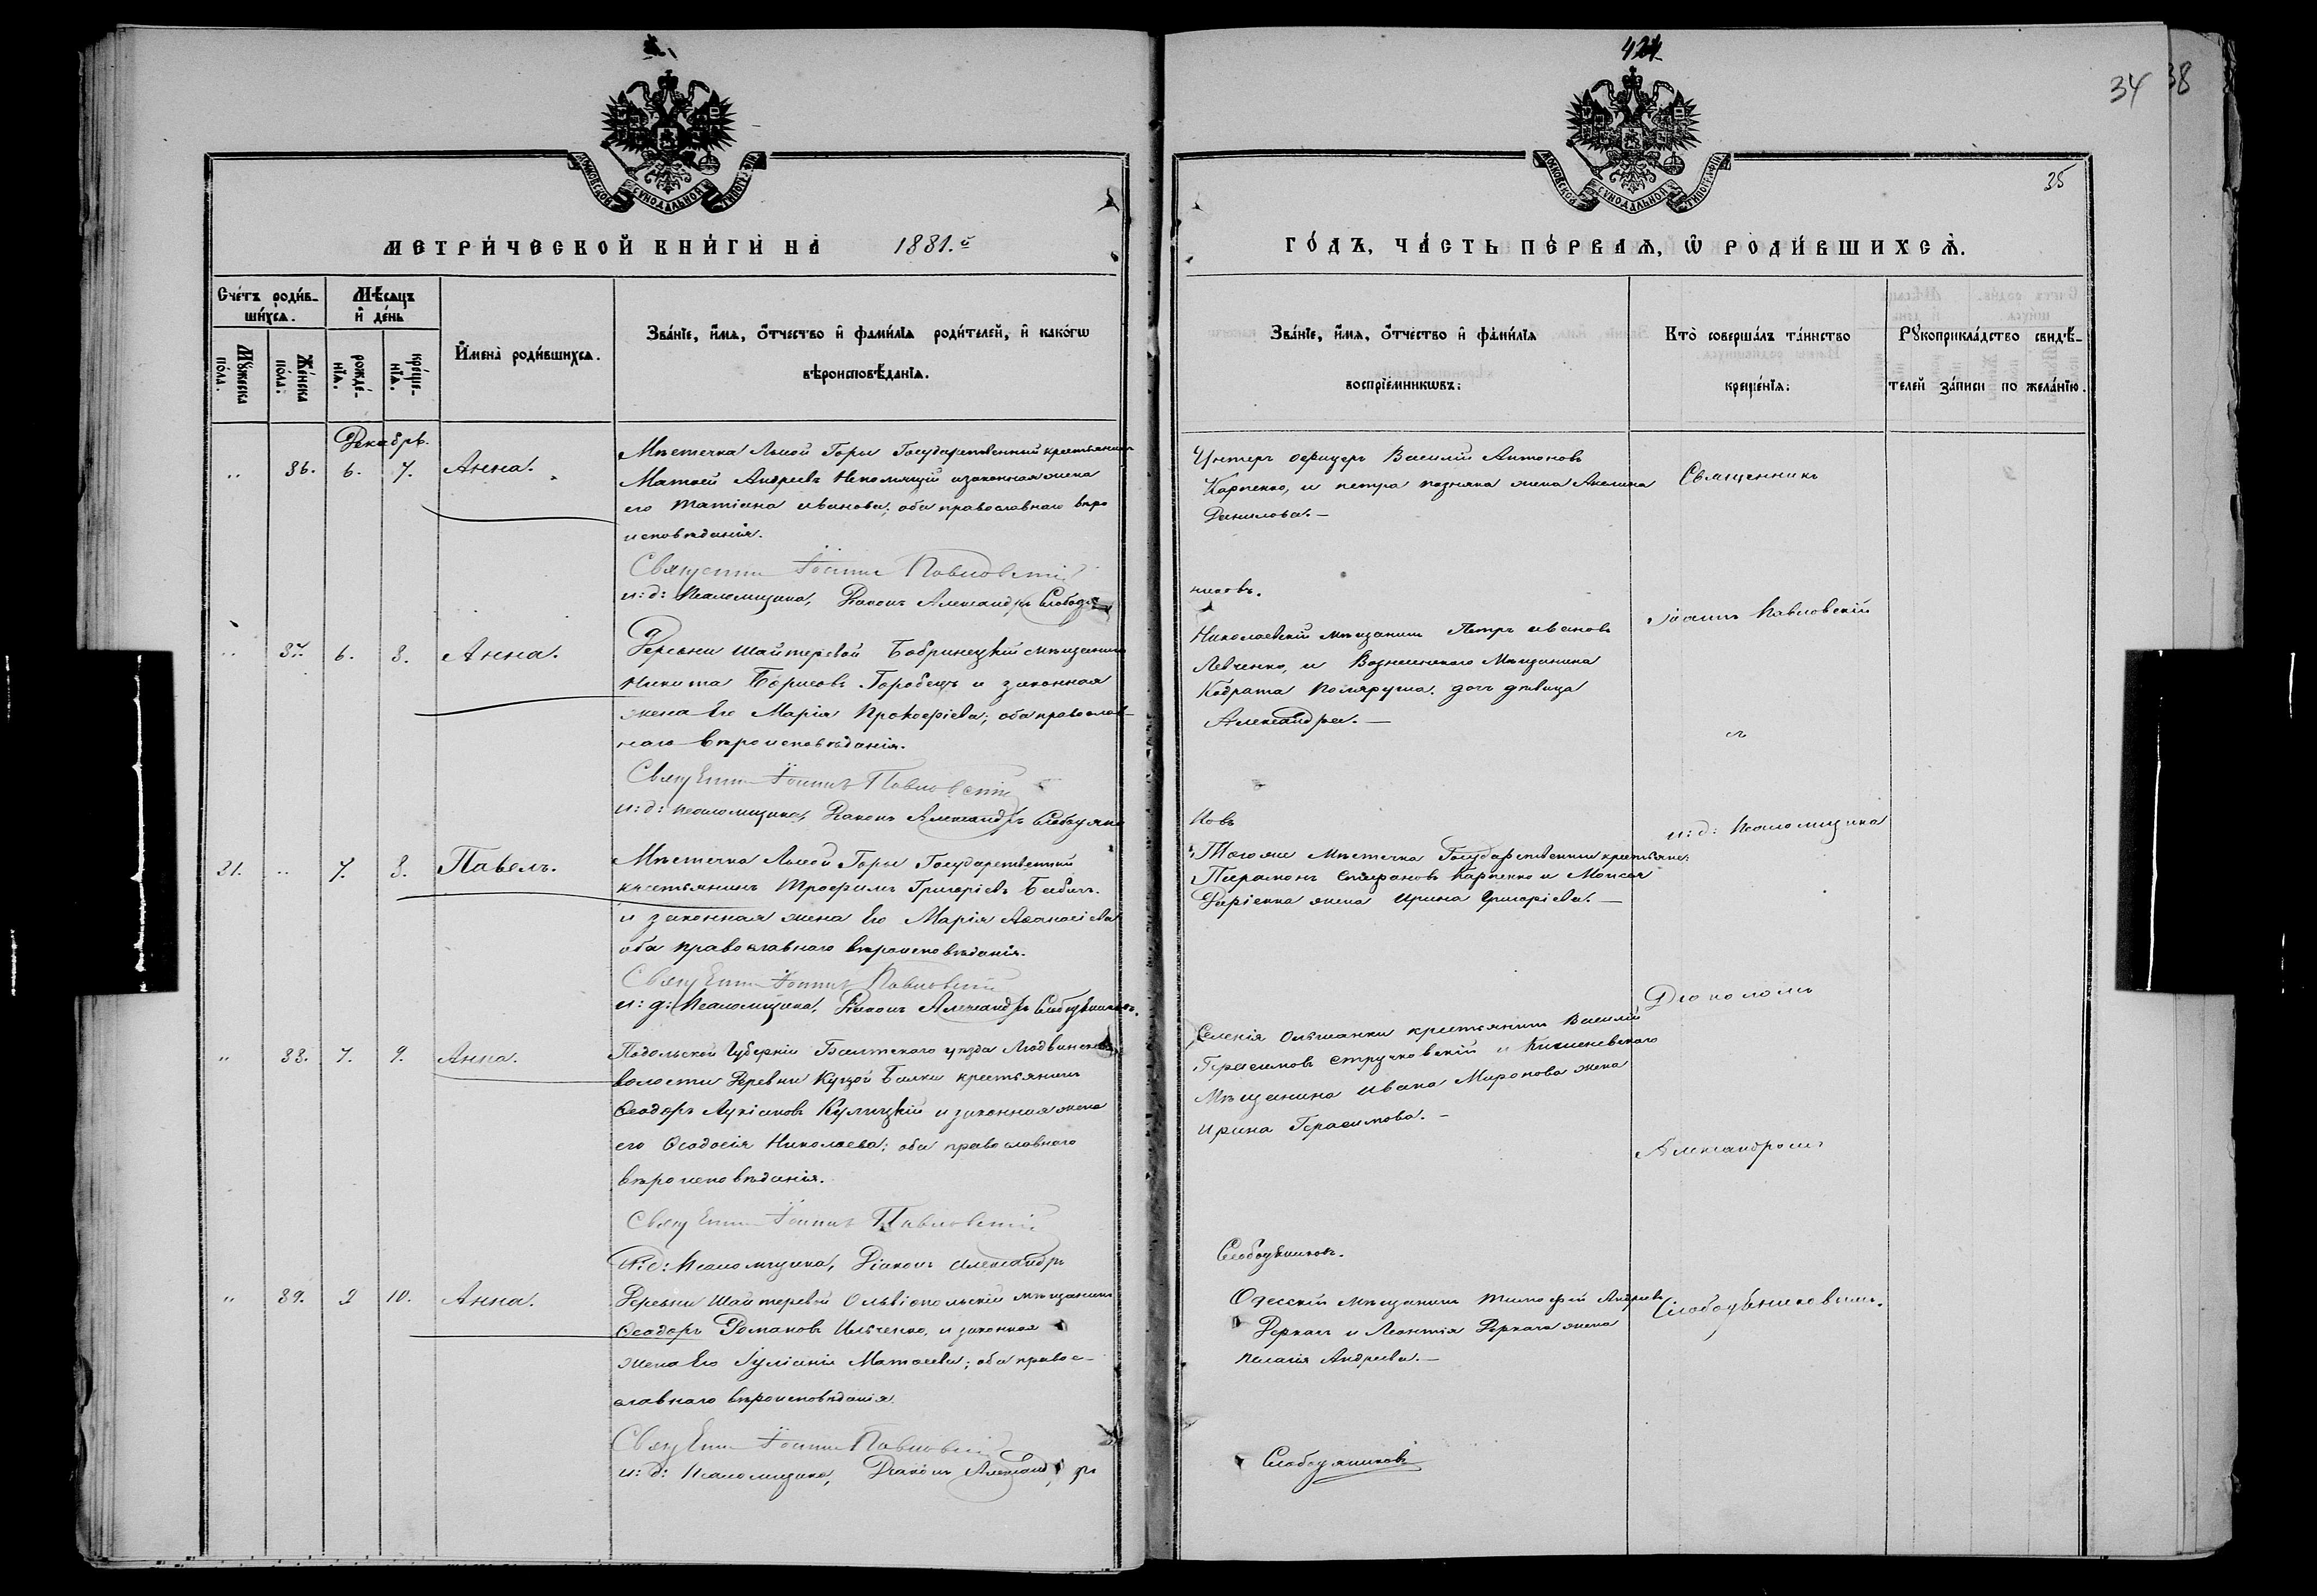 424
34
38
35
МОСКОВСКОЙ СѴНОДАЛЬНОЙ ТИПОГРАФІИ
МОСКОВСКОЙ СѴНОДАЛЬНОЙ ТИПОГРАФІИ
МЕТРИ́ЧЕСКОЙ КНИ́ГИ НА̀ 1881.й
ГО́ДЪ, ЧА́СТЬ ПЕ́РВАѦ, Ѡ҆ РОДИ́ВШИХСѦ.
Сче́тъ роди́в-
ши́хсѧ.
Мѣ́сѧцъ
и҆ де́нь
Мꙋ́жеска
по́ла.
Же́нска
по́ла.
рожде́-
нїѧ.
креще́-
нїѧ.
И҆мена̀ роди́вшихсѧ.
Зва́нїе, и҆́мѧ, ѻ҆́тчество и҆ фами́лїѧ роди́телей, и҆ како́гѡ
вѣроисповѣ́данїѧ.
Зва́нїе, и҆́мѧ, ѻ҆́тчество и҆ фами́лїѧ
воспрїе́мникѡвъ.
Кто̀ соверша́лъ та́инство
креще́нїѧ.
Рꙋкоприкла́дство свидѣ́-
телей за́писи по жела́нїю.
Декабрь.
" 86. 6. 7. Анна.
Мѣстечка Лысой Горы Государственный крестьянинъ
Матѳей Андреевъ Непомящій и законная жена
его Татіана Иванова; оба православнаго вѣро
исповѣданія.
Священникъ Іоаннъ Павловскій
и: д: Псаломщика, Діаконъ Александръ Слободя
Унтеръ офицеръ Василій Антоновъ
Карпенко, и Петра Позняка жена Акилина
Данилова.—
никовъ.
Священникъ
" 87. 6. 8. Анна.
Деревни Шайтеревой Бобринецкій мѣщанинъ
Никита Борисовъ Горобецъ и законная
жена его Марія Прокофіева; оба православ-
наго вѣроисповѣданія.
Священникъ Іоаннъ Павловскій
и: д: Псаломщика, Діаконъ Александръ Слободяни
Николаевскій мѣщанинъ Петръ Ивановъ
Левченко, и Вознесенскаго Мѣщанина
Кодрата Поляруша дочь дѣвица
Александра.—
ковъ
Іоаннъ Павловскій
съ
21. " 7. 8. Павелъ.
Мѣстечка Лысой Горы Государственный
крестьянинъ Трофимъ Григоріевъ Бабичъ.
и законная жена его Марія Аѳанасіева
оба православнаго вѣроисповѣданія.
Священникъ Іоаннъ Павловскій
и: д: Псаломщика, Діаконъ Александръ Слободяниковъ.
Того же Мѣстечка Государственные крестьяне:
Парамонъ Стефановъ Карпенко и Моисея
Даріенка жена Ирина Григоріева.—
и: д: Псаломщика
Діакономъ
" 88. 7. 9. Анна.
Подольской Губерніи Балтскаго уѣзда Людвинской
волости Деревни Куцой Балки крестьянинъ
Ѳеодоръ Лукіановъ Кулицкій и законная жена
его Ѳеодосія Николаева; оба православнаго
вѣроисповѣданія.
Священникъ Іоаннъ Павловскій
И: д: Псаломщика, Діаконъ Александръ
Селенія Ольшанки крестьянинъ Василій
Герасимовъ Стручковскій и Кишеневскаго
Мѣщанина Ивана Миронова жена
Ирина Герасимова.—
Слободяниковъ.
Александромъ
" 89. 9 10. Анна.
Деревни Шайтеревой Ольвіопольскій мѣщанинъ
Ѳеодоръ Романовъ Ильченко, и законная
жена его Іуліанія Матѳеева; оба право-
славнаго вѣроисповѣданія.
Священникъ Іоаннъ Павловскій
и: д: Псаломщика, Діаконъ Александръ
Одесскій мѣщанинъ Тимофей Андреевъ
Деркачъ и Леонтія Деркача жена
Пелагія Андреева.—
Слободяниковъ
Слободяниковымъ.